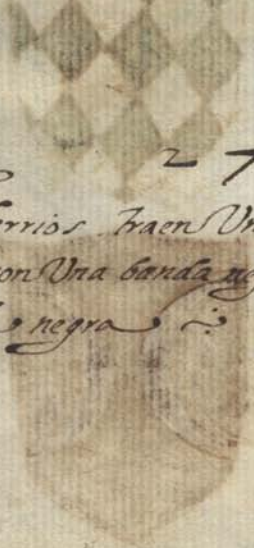 27
errios traen Un
con Una banda neg
o negra